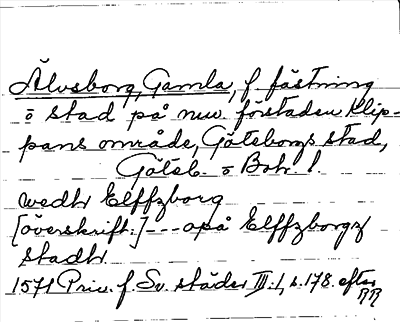 Älvsborg, Gamla, f. fästning
o stad på nuv. förstaden Klip-
pans område, Göteborgs stad,
Göteb. o Boh. l.
wedh Elffzborg
[överskrift:] --- apå Elffzborgz
stadh
1571 Priv. f. Sv. städer III:1, s. 178. efter
RR